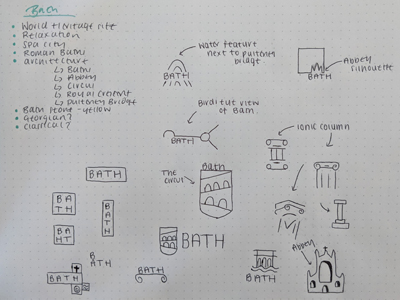 Bath
• World Heritage site
• Relaxation
• Spa city
• Roman Baths
• architecture
↳ Baths
↳ Abbey
↳ Circus
↳ Royal Crescent
↳ Pulteney Bridge
• Bath Stone - yellow
• Georgian?
• Classical?
Water feature
next to pulteney
bridge
BATH
Abbey
silhouette
BATH
Birds eye view
of Bath.
BATH
Ionic column
The
circus
Bath
BATH
BA
TH
BATH
BA
HT
B
ATH
BATH
BATH
BATH
BATH
Abbey